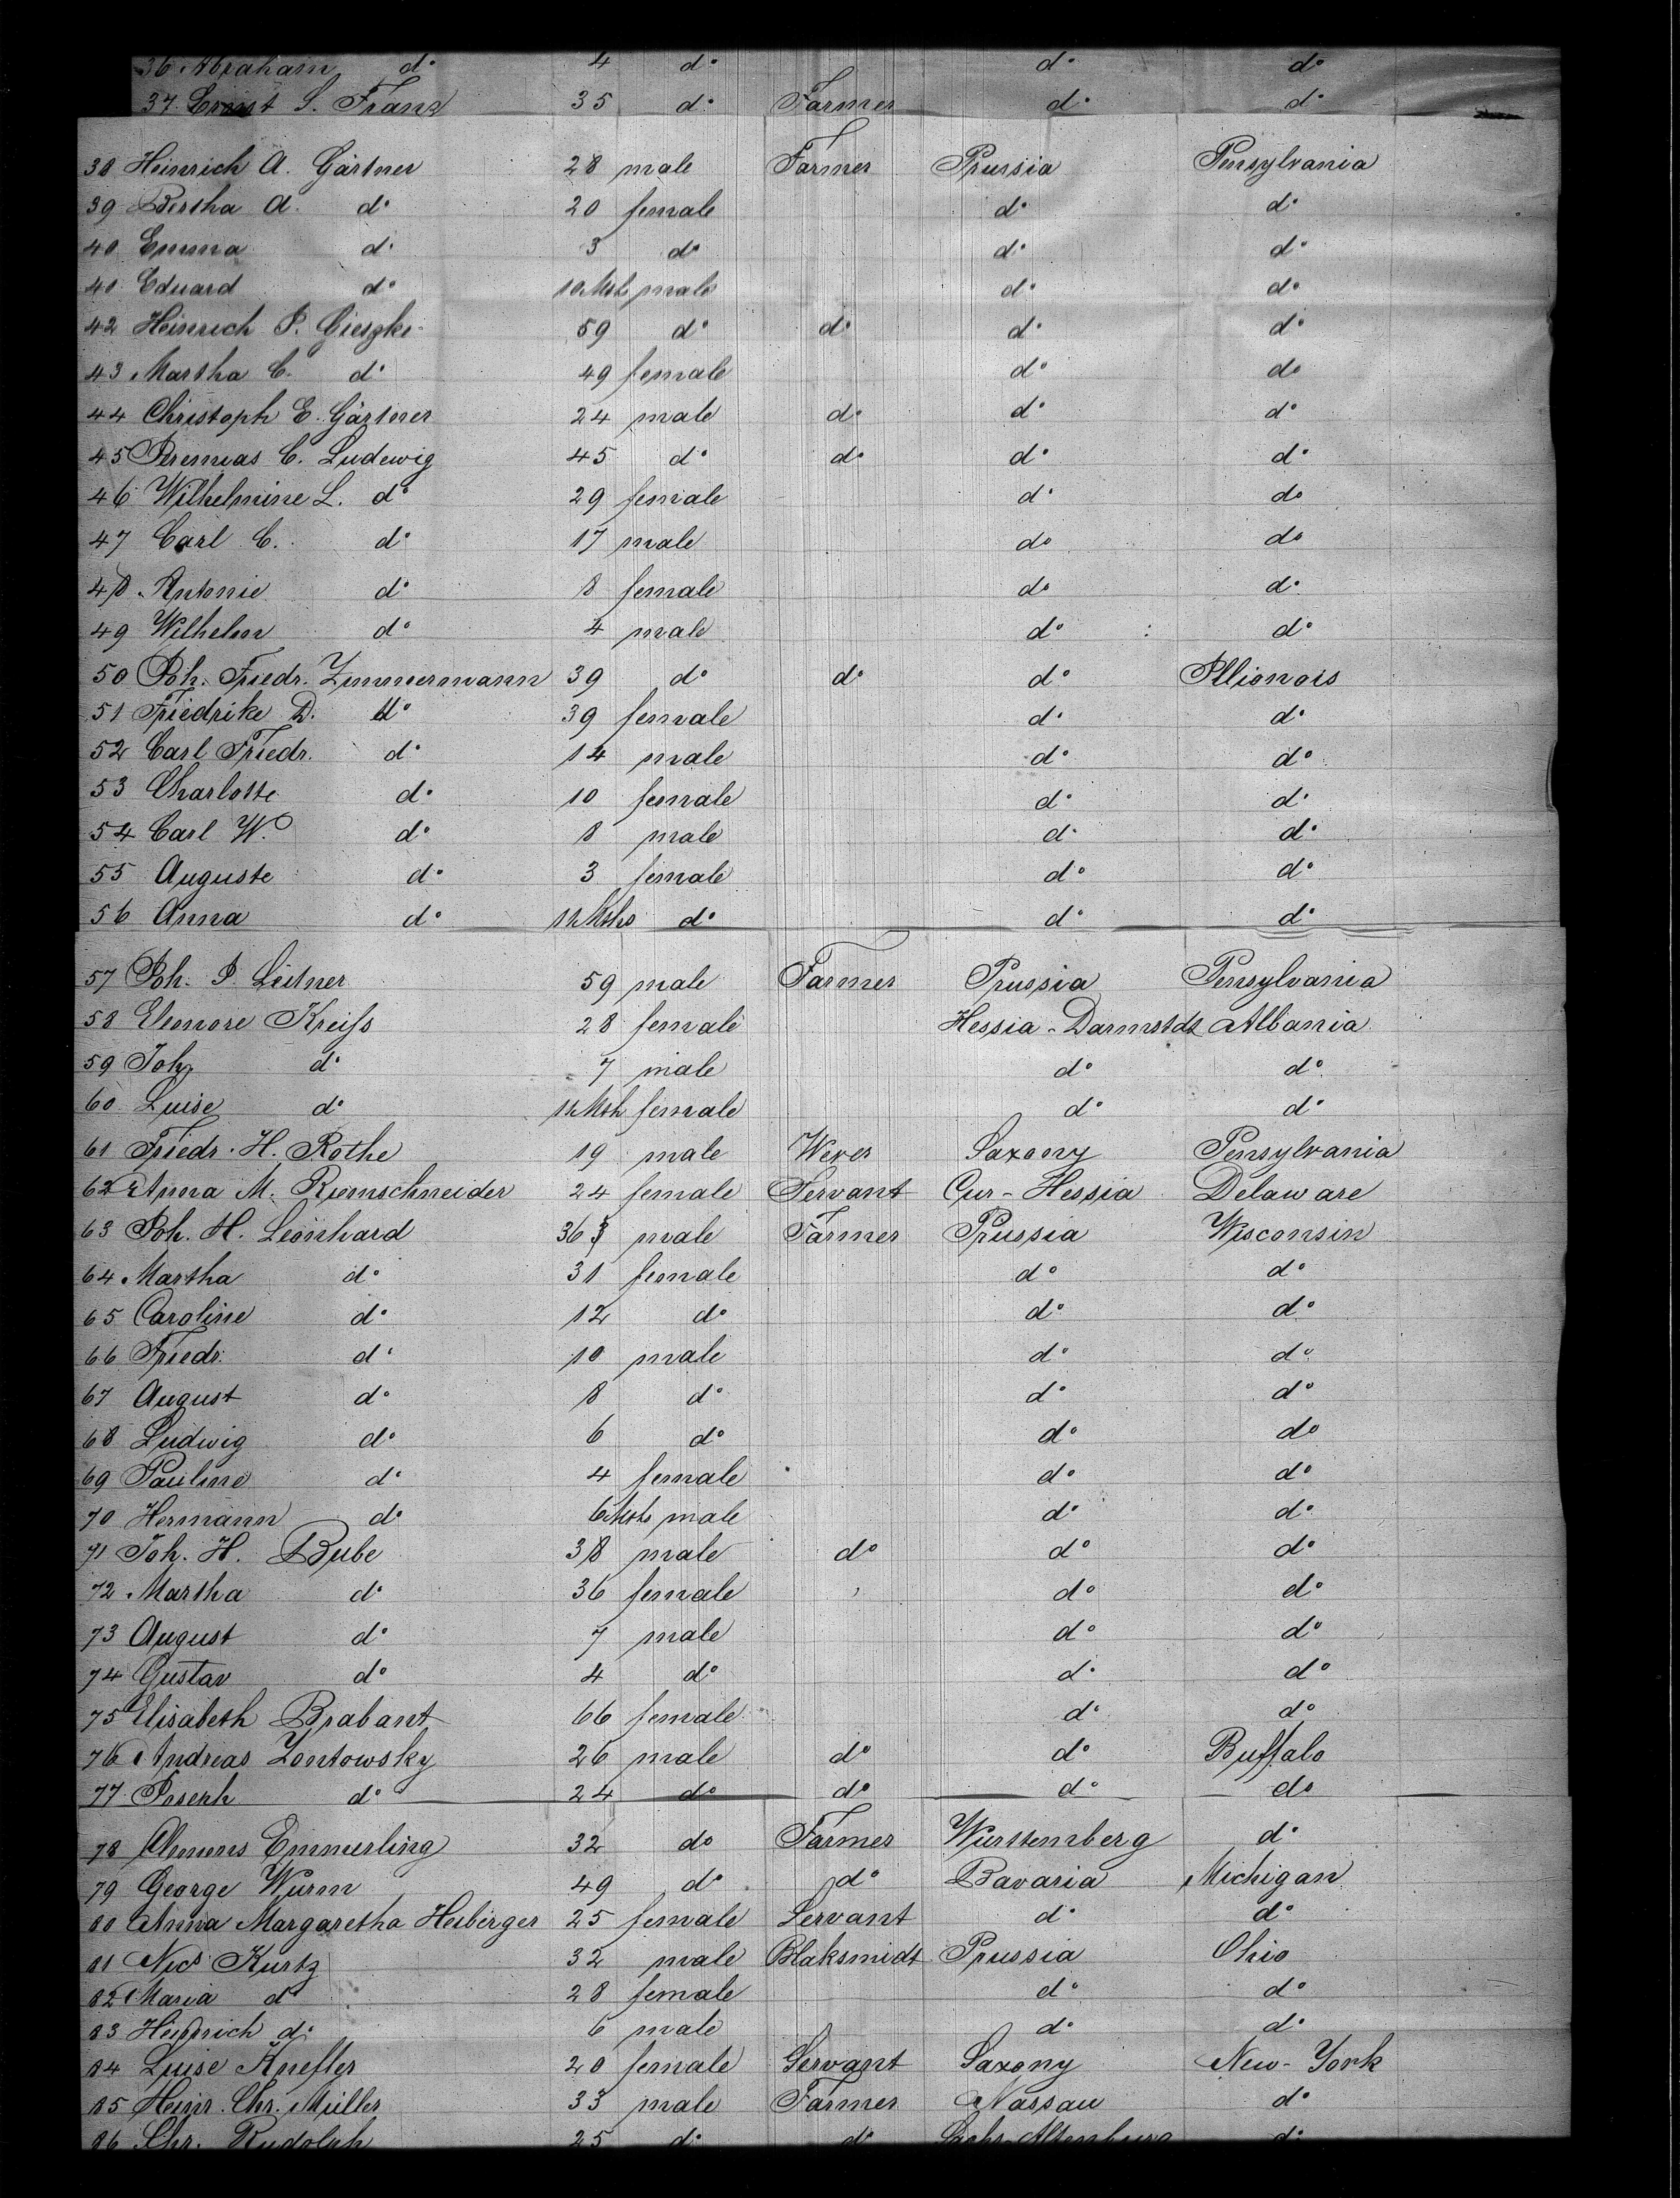 36 Abraham do 4 do do do
37 Ernst S. Franz 35 do Farmer do do
38 Heinrich A. Gärtner 28 male Farmer Prussia Pensylvania
39 Bertha A. do 20 female do do
40 Emma do 3 do do do
40 Eduard do 10 Mth male do do
42 Heinrich P. 59 do do do do
43 Martha C. do 49 female do do
44 Christoph E. Gärtner 24 male do do do
45 Jeremias C. Ludewig 45 do do do do
46 Wilhelmine L. do 29 female do do
47 Carl C. do 17 male do do
48 Antonie do 8 female do do
49 Wilhelm do 4 male do do
50 Joh. Friedr. Zimmermann 39 do do do Illionois
51 Friedrike D. do 39 female do do
52 Carl Friedr. do 14 male do do
53 Charlotte do 10 female do do
54 Carl W. do 8 male do do
55 Auguste do 3 female do do
56 Anna do 11 Mths do do do
57 Joh. P. Leitner 59 male Farmer Prussia Pensylvania
58 Eleonore Kreiſs 28 female Hessia-Darmstdt Albania
59 Joh. do 7 male do do
60 Luise do 11 Mth female do do
61 Friedr. H. Rothe 19 male Wever Saxony Pensylvania
62 Anna M. Riemschneider 24 female Servant Cur-Hessia Delaware
63 Joh. H. Leonhard 36 male Farmer Prussia Wisconsin
64 Martha do 31 female do do
65 Caroline do 12 do do do
66 Friedr. do 10 male do do
67 August do 8 do do do
68 Ludwig do 6 do do do
69 Pauline do 4 female do do
70 Hermann do 6 Mth male do do
71 Joh. H. Bube 38 male do do do
72 Martha do 36 female do do
73 August do 7 male do do
74 Gustav do 4 do do do
75 Elisabeth Brabant 66 female do do
76 Andreas Zontowsky 26 male do do Buffalo
77 Joseph do 24 do do do do
78 Clemens Emmerling 32 do Farmer Wurttemberg do
79 George Wurm 49 do do Bavaria Michigan
80 Anna Margaretha Heiberger 25 female Servant do do
81 Nics Kurtz 32 male Blaksmidt Prussia Ohio
82 Maria do 28 female do do
83 Heinrich do 6 male do do
84 Luise Knefler 20 female Servant Saxony New-York
85 Heinr. Chr. Müller 33 male Farmer Nassau do
86 Chr. Rudolph 25 do do Sachs-Altenburg do